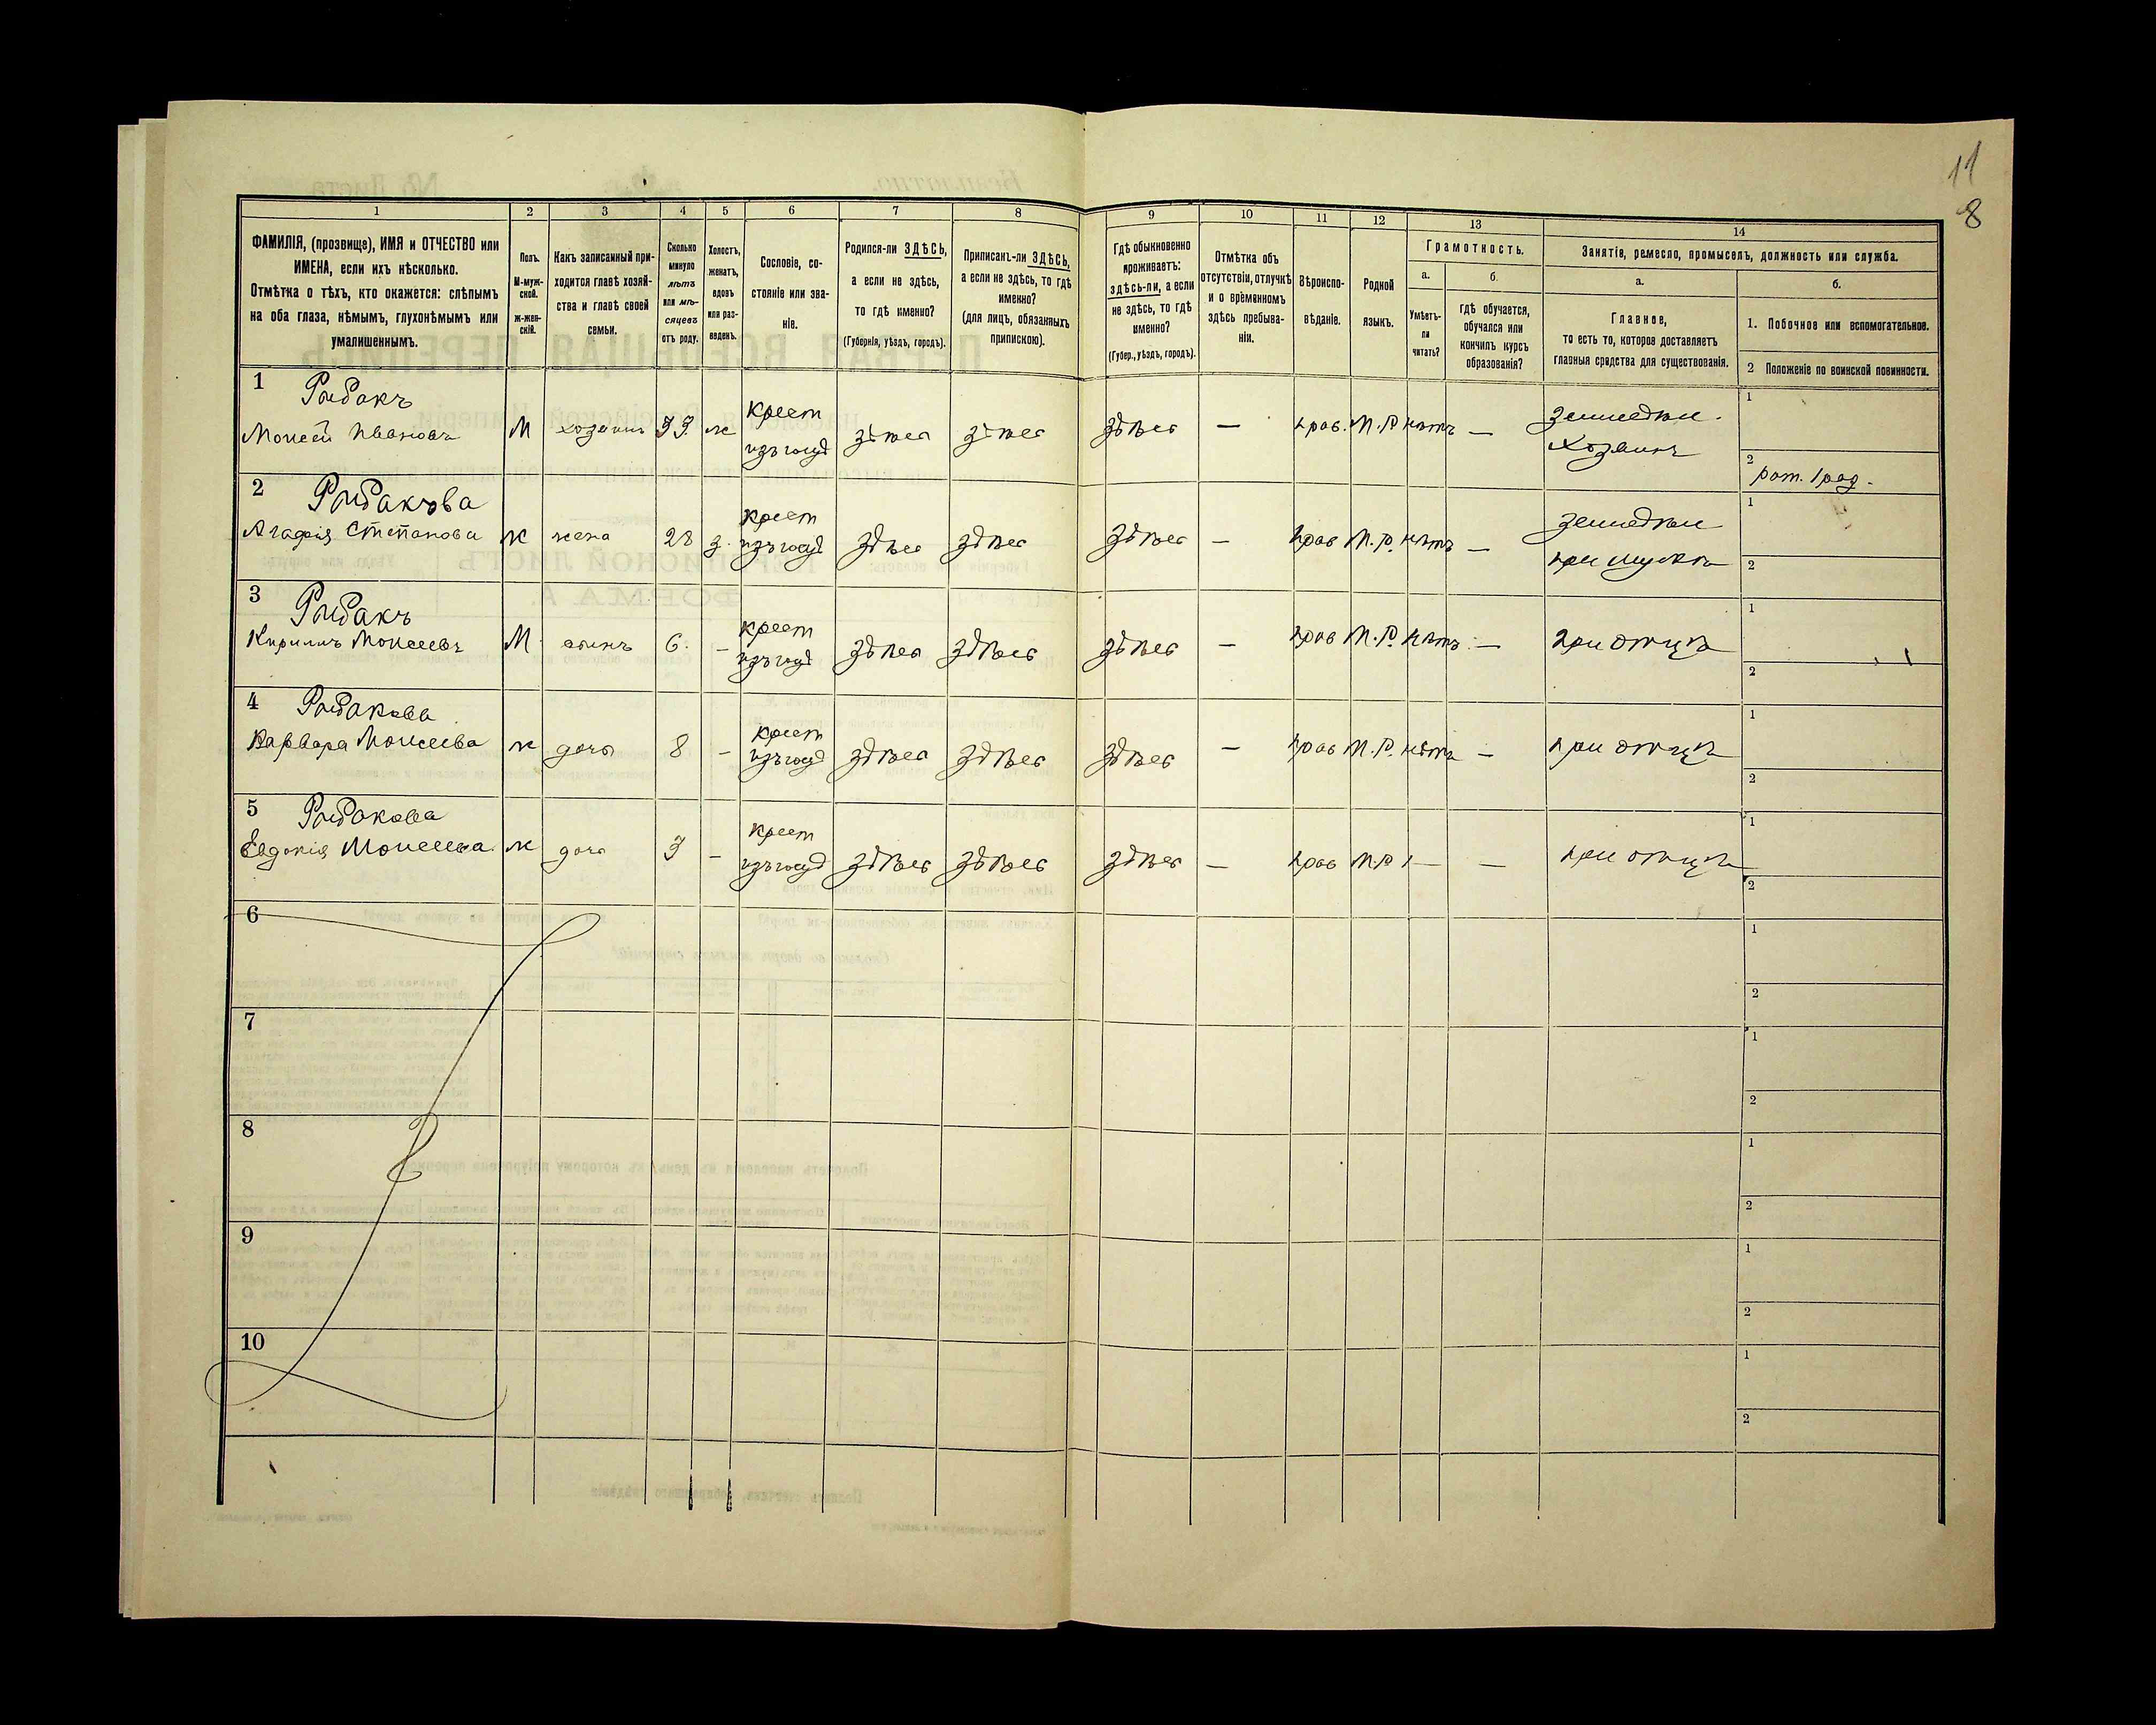 11
8
1 2 3 4 5 6 7 8 9 10 11 12 13 14
ФАМИЛІЯ, (прозвище), ИМЯ и ОТЧЕСТВО или
ИМЕНА, если ихъ нѣсколько.
Отмѣтка о тѣхъ, кто окажется: слѣпымъ
на оба глаза, нѣмымъ, глухонѣмымъ или
умалишеннымъ.
Полъ.
М-муж-
ской.
ж-жен-
скій.
Какъ записанный при-
ходится главѣ хозяй-
ства и главѣ своей
семьи.
Сколько
минуло
лѣтъ
или мѣ-
сяцевъ
отъ роду.
Холостъ,
женатъ,
вдовъ
или раз-
веденъ.
Сословіе, со-
стояніе или зва-
ніе.
Родился-ли ЗДѢСЬ,
а если не здѣсь,
то гдѣ именно?
(Губернія, уѣздъ, городъ).
Приписанъ-ли ЗДѢСЬ,
а если не здѣсь, то гдѣ
именно?
(для лицъ, обязанныхъ
припискою).
Гдѣ обыкновенно
проживаетъ:
здѣсь-ли, а если
не здѣсь, то гдѣ
именно?
(Губер., уѣздъ, городъ).
Отмѣтка объ
отсутствіи, отлучкѣ
и о временномъ
здѣсь пребыва-
ніи.
Вѣроиспо-
вѣданіе.
Родной
языкъ.
Грамотность.
а.
Умѣетъ-
ли
читать?
б.
гдѣ обучается,
обучался или
кончилъ курсъ
образованія?
Занятіе, ремесло, промыселъ, должность или служба.
а.
Главное,
то есть то, которое доставляетъ
главныя средства для существованія.
б.
1. Побочное или вспомогательное.
2 Положеніе по воинской повинности.
1 Рыбакъ
Моисей Ивановъ М хозяинъ 33 ж крест изъ госуд здѣсь здѣсь здѣсь — прав. М.Р нѣтъ — земледѣл. Хозяинъ
1
2 рат. 1 раз.
2 Рыбакова
Агафія Степанова ж жена 28 з. крест изъ госуд здѣсь здѣсь здѣсь — прав М.Р. нѣтъ — земледѣл при мужѣ
1
2
3 Рыбакъ
Кирилъ Моисеевъ М сынъ 6. – крест изъ госуд здѣсь здѣсь здѣсь — прав М.Р. нѣтъ — при отцѣ
1
2
4 Рыбакова
Варвара Моисеева ж дочь 8 – крест изъ госуд здѣсь здѣсь здѣсь — прав М.Р. нѣтъ — при отцѣ
1
2
5 Рыбакова
Евдокія Моисеева ж дочь 3 – крест изъ госуд здѣсь здѣсь здѣсь — прав М.Р — — при отцѣ
1
2
6
1
2
7
1
2
8
1
2
9
1
2
10
1
2